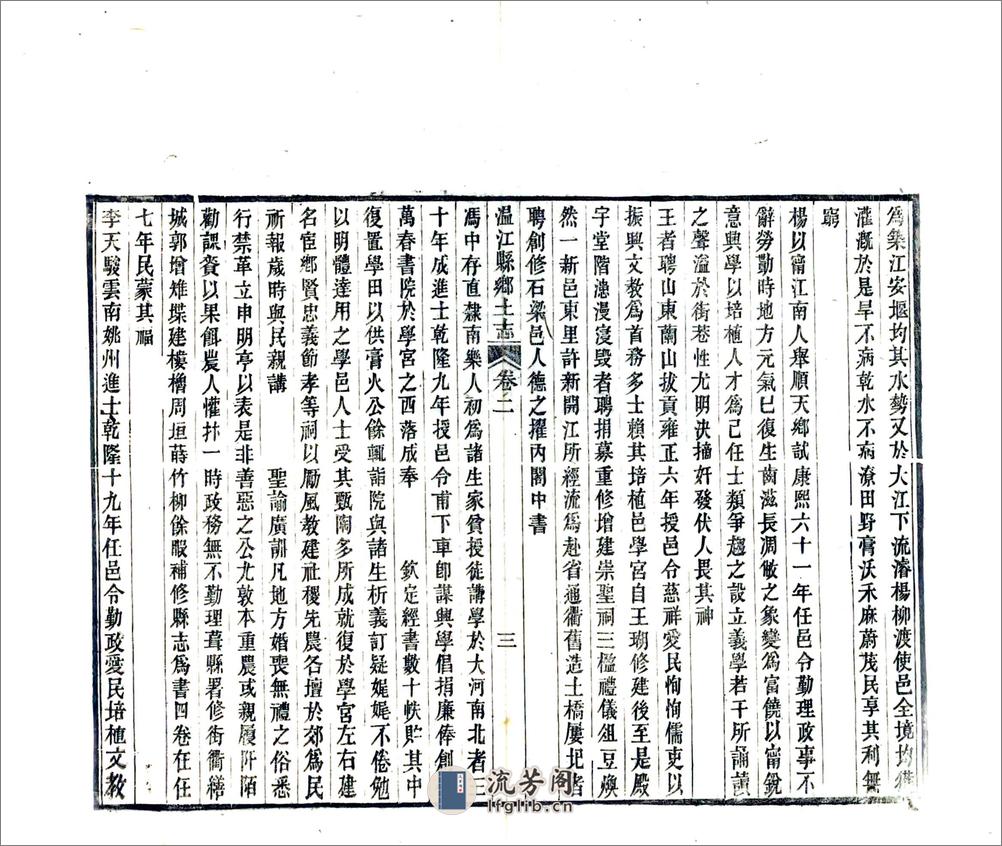 爲築江安堰均其水勢又於大江下流濬楊柳渡使邑全境均獲
灌漑於是旱不病乾水不病潦田野膏沃禾麻蔚茂民享其利無
窮
楊以甯江南人舉順天鄉試康熙六十一年任邑令勤理政事不
辭勞勤時地方元氣巳復生齒滋長凋敝之象變爲富饒以甯銳
意興學以培植人才爲己任士類爭趨之設立義學若干所誦讀
之聲溢於街巷性尤明決摘奸發伏人畏其神
王者聘山東蘭山拔貢雍正六年授邑令慈祥愛民恂恂儒吏以
振興文教爲首務多士賴其培植邑學宮自王瑚修建後至是殿
宇堂階漶漫寖毀者聘捐募重修增建崇聖祠三楹禮儀俎豆煥
然一新邑東里許新開江所經流爲赴省通衢舊造土橋屢圯者
聘創修石梁邑人德之擢內閣中書
溫江縣鄉土志 卷二 三
馮中存直隸南樂人初爲諸生家貧授徒講學於大河南北者三
十年成進士乾隆九年授邑令甫下車卽謀興學倡捐廉俸創
萬春書院於學宮之西落成奉 欽定經書數十帙貯其中
復置學田以供膏火公餘輒詣院與諸生析義訂疑娓娓不倦勉
以明體達用之學邑人士受其甄陶多所成就復於學宮左右建
名宦鄉賢忠義節孝等祠以勵風教建社稷先農各壇於郊爲民
祈報歲時與民親講 聖諭廣訓凡地方婚喪無禮之俗悉
行禁革立申明亭以表是非善惡之公尤敦本重農或親履阡陌
勸課賚以果餌農人懽抃一時政務無不勤理葺縣署修街衢繕
城郭增雉堞建樓櫓周垣蒔竹柳餘暇補修縣志爲書四卷在任
七年民蒙其福
李天駿雲南姚州進士乾隆十九年任邑令勤政愛民培植文教
流芳阁
lfglib.cn